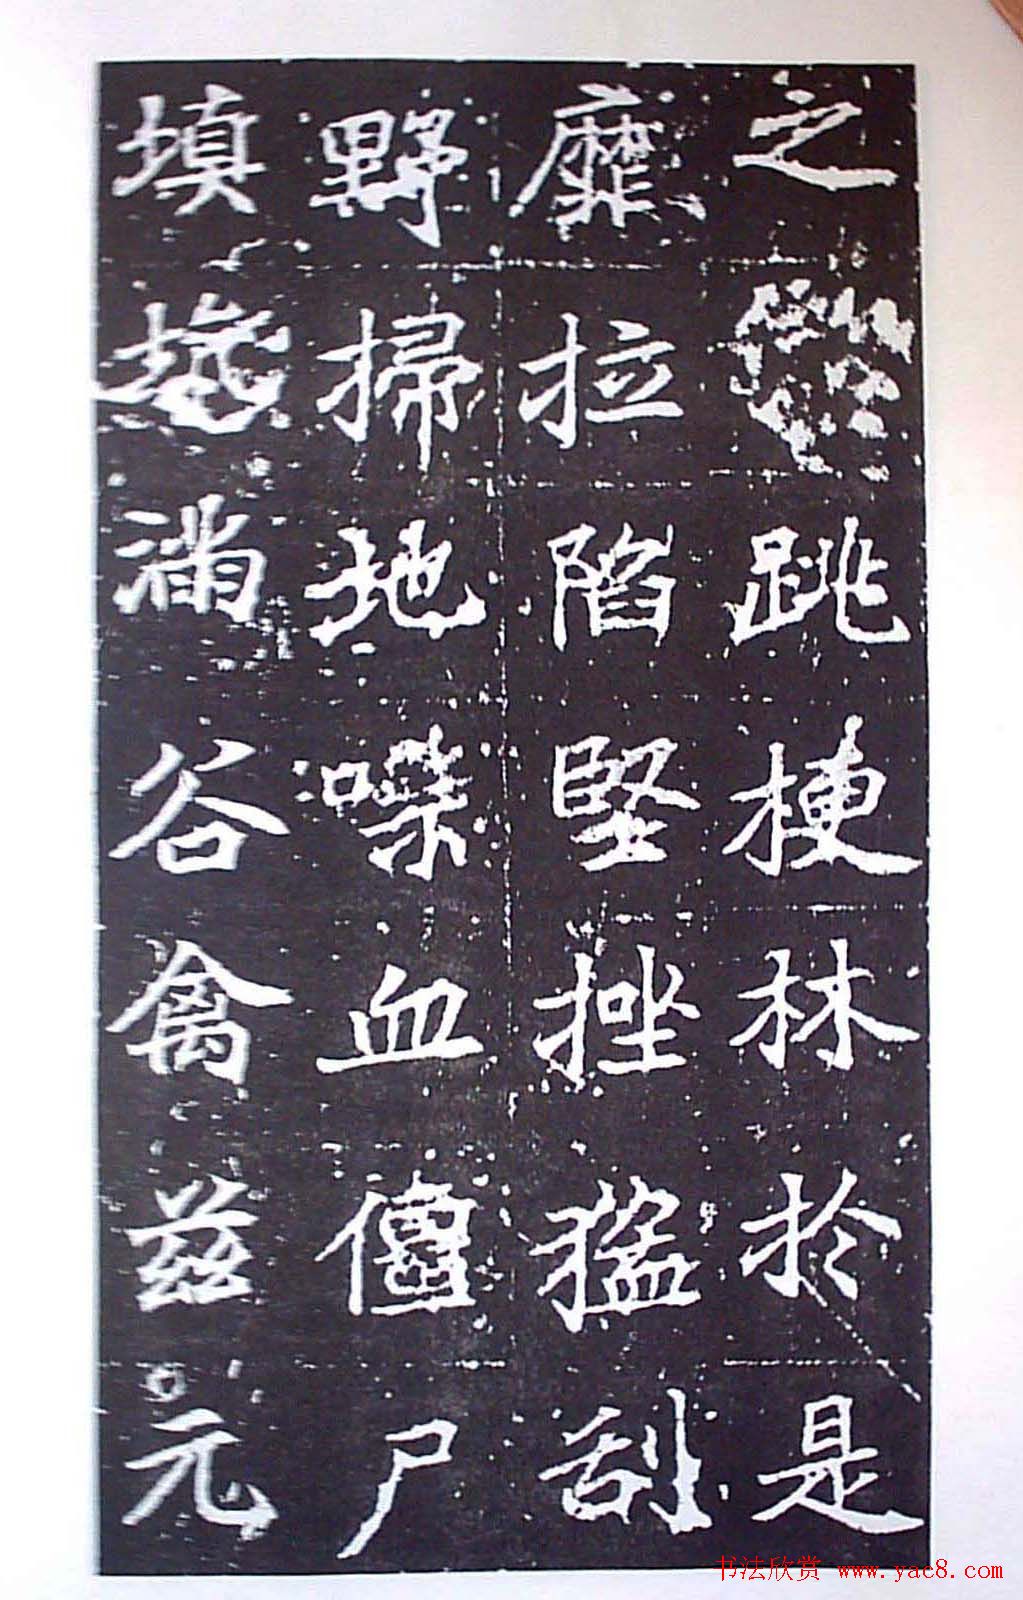 之跳梗林於是
靡拉陷堅挫猛刮
野掃地喋血僵尸
填滿谷禽茲元
书法欣赏 www.yac8.com